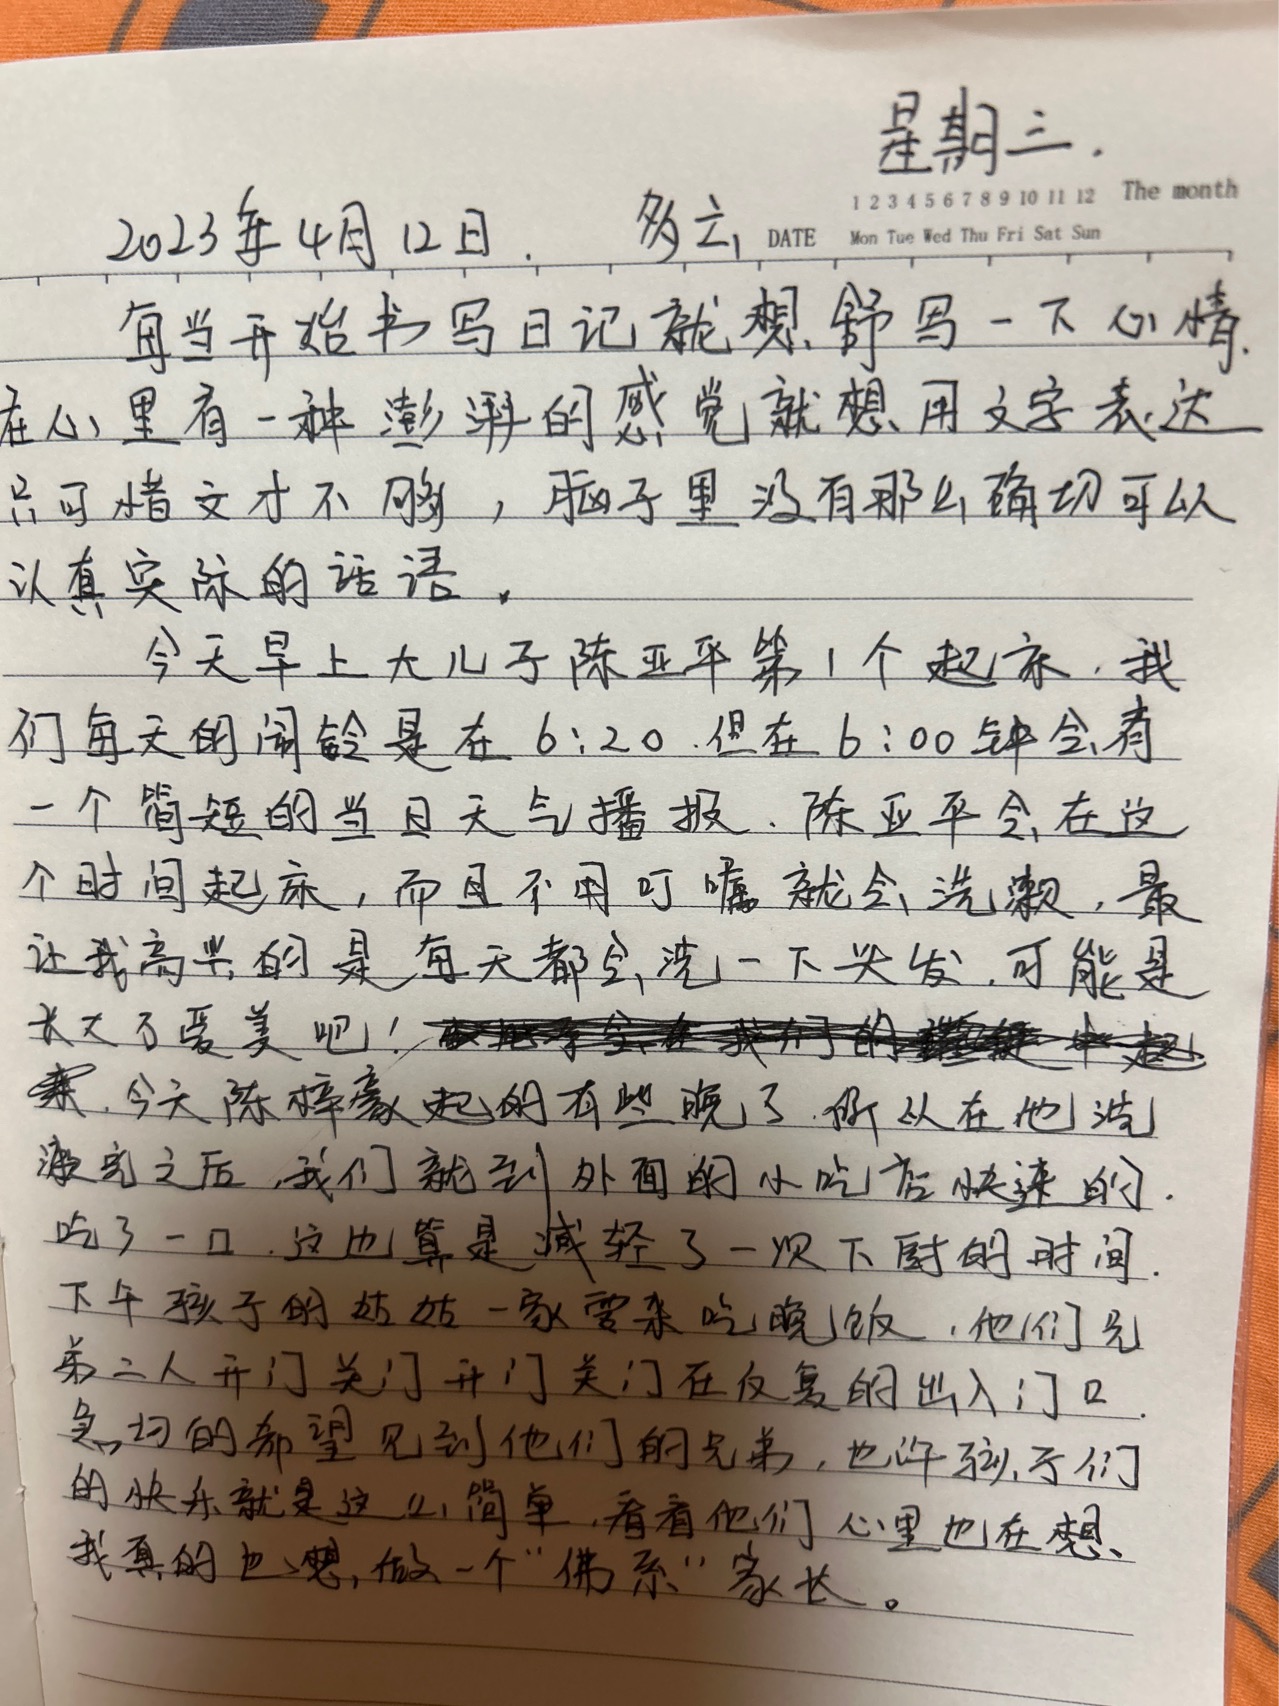 星期三.
1 2 3 4 5 6 7 8 9 10 11 12 The month
2023年4月12日. 多云 DATE Mon Tue Wed Thu Fri Sat Sun
每当开始书写日记就想舒写一下心情.
在心里有一种澎湃的感觉就想用文字表达
只可惜文才不够，脑子里没有那么确切可以
认真实际的话语。
今天早上大儿子陈亚平第1个起床，我
们每天的闹铃是在6:20.但在6:00钟会有
一个简短的当日天气播报.陈亚平会在这
个时间起床，而且不用叮嘱就会洗漱，最
让我高兴的是每天都会洗一下头发.可能是
长大了爱美吧！
今天陈梓豪起的有些晚了.所以在他洗
漱完之后，我们就到外面的小吃店快速的.
吃了一口.这也算是减轻了一次下厨的时间.
下午孩子的姑姑一家要来吃晚饭，他们兄
弟二人开门关门开门关门在反复的出入门口.
急切的希望见到他们的兄弟，也许孩子们
的快乐就是这么简单，看着他们心里也在想、
我真的也想，做一个“佛系”家长。